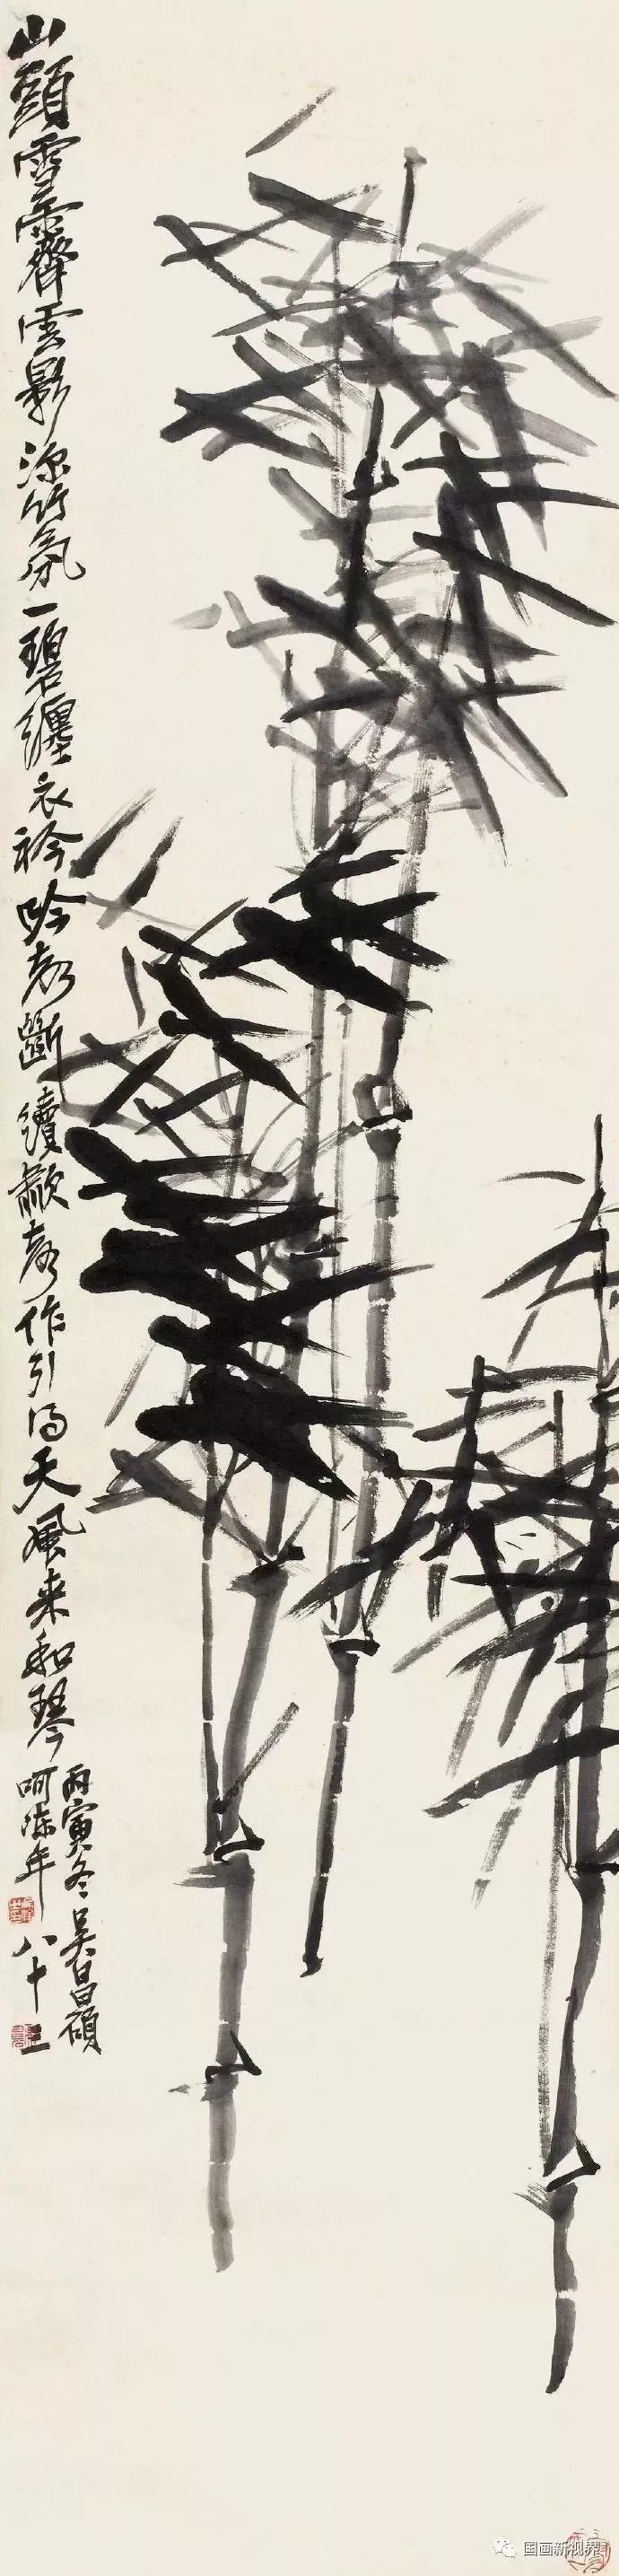 山頭雪霽雲影深竹氣一碧纏衣衿吟聲斷續歗聲作引得天風來和琴
丙寅冬吳昌碩
呵凍年八十三
国画新视界